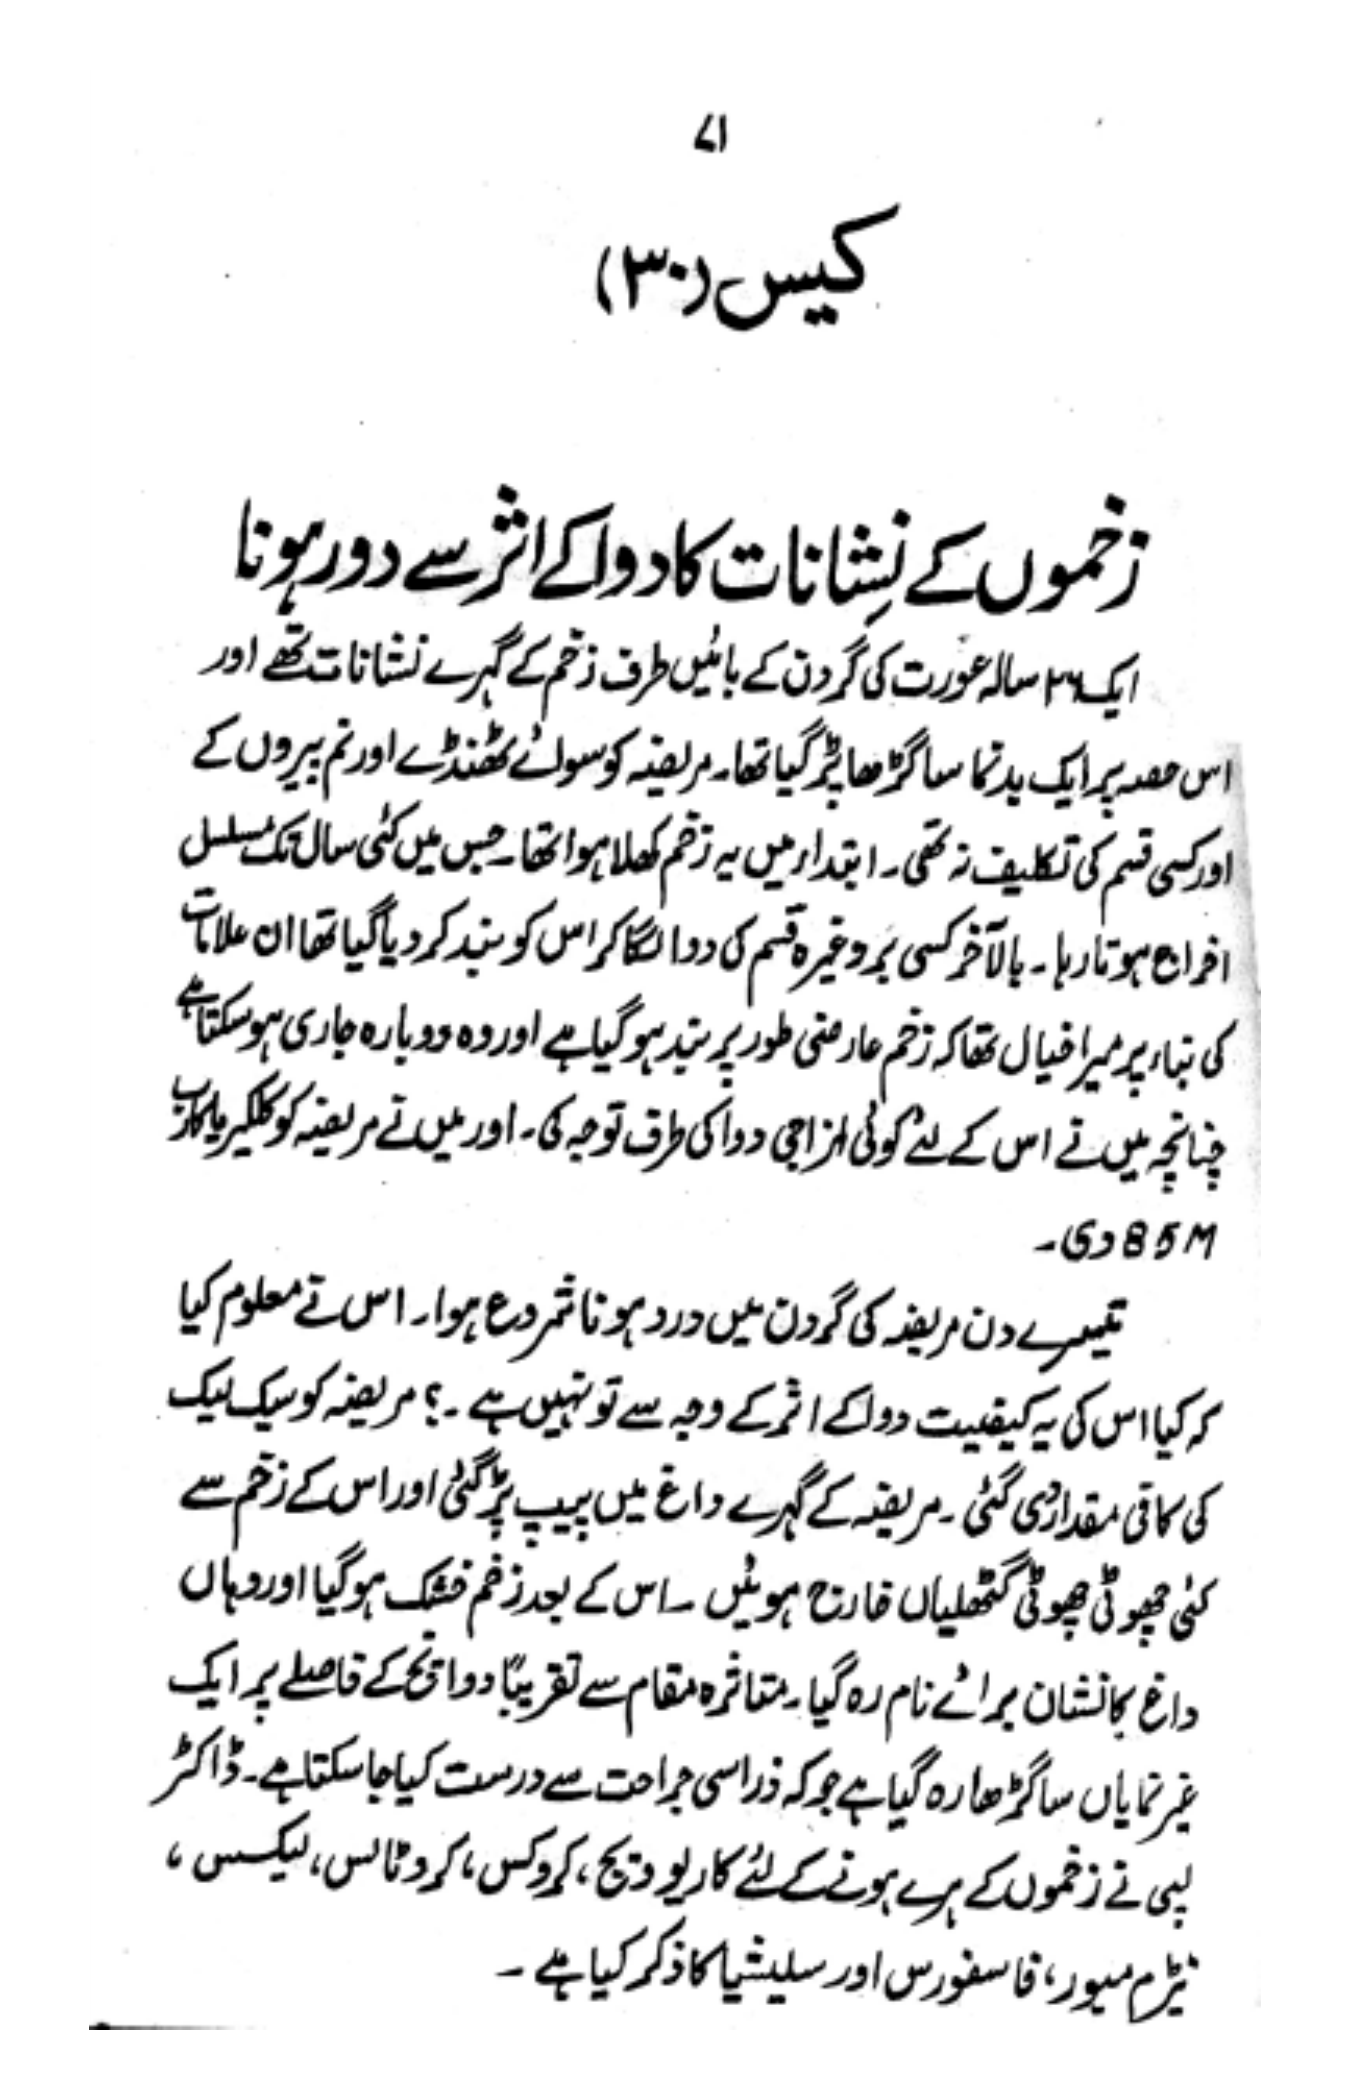 ۷۱
کیس (۳۰)
زخموں کے نشانات کا دوا کے اثر سے دور ہونا
ایک ۳۶ سالہ عورت کی گردن کے بائیں طرف زخم کے گہرے نشانات تھے اور
اس حصہ پر ایک بدنما سا گڑھا پڑ گیا تھا۔ مریضہ کو سوائے ٹھنڈے اور نم پیروں کے
اور کسی قسم کی تکلیف نہ تھی۔ ابتداء میں یہ زخم کھلا ہوا تھا۔ جس میں کئی سال تک مسلسل
اخراج ہوتا رہا۔ بالآخر کسی وغیرہ قسم کی دوا لگا کر اس کو بند کر دیا گیا تھا ان علامات
کی بناء پر میرا خیال تھا کہ زخم عارضی طور پر بند ہو گیا ہے اور وہ دوبارہ جاری ہو سکتا ہے
چنانچہ میں نے اس کے لئے کوئی مزاجی دوا کی طرف توجہ کی۔ اور میں نے مریضہ کو کلکیریا کارب
85M دی۔
تیسرے دن مریضہ کی گردن میں درد ہونا شروع ہوا۔ اس نے معلوم کیا
کہ کیا اس کی یہ کیفیت دوا کے اثر کے وجہ سے تو نہیں ہے۔؟ مریضہ کو سیک لیک
کی کافی مقدار دی گئی۔ مریضہ کے گہرے داغ میں پیپ پڑ گئی اور اس کے زخم سے
کئی چھوٹی چھوٹی گٹھلیاں خارج ہوئیں۔ اس کے بعد زخم خشک ہو گیا اور وہاں
داغ کا نشان برائے نام رہ گیا۔ متاثرہ مقام سے تقریباً دو انچ کے فاصلے پر ایک
غیر نمایاں سا گڑھا رہ گیا ہے جو کہ ذرا سی جراحت سے درست کیا جا سکتا ہے۔ ڈاکٹر
لپی نے زخموں کے ہرے ہونے کے لئے کاربو ویج، کروکس، کروٹالس، لیکسس،
نیٹرم میور، فاسفورس اور سلیشیا کا ذکر کیا ہے۔